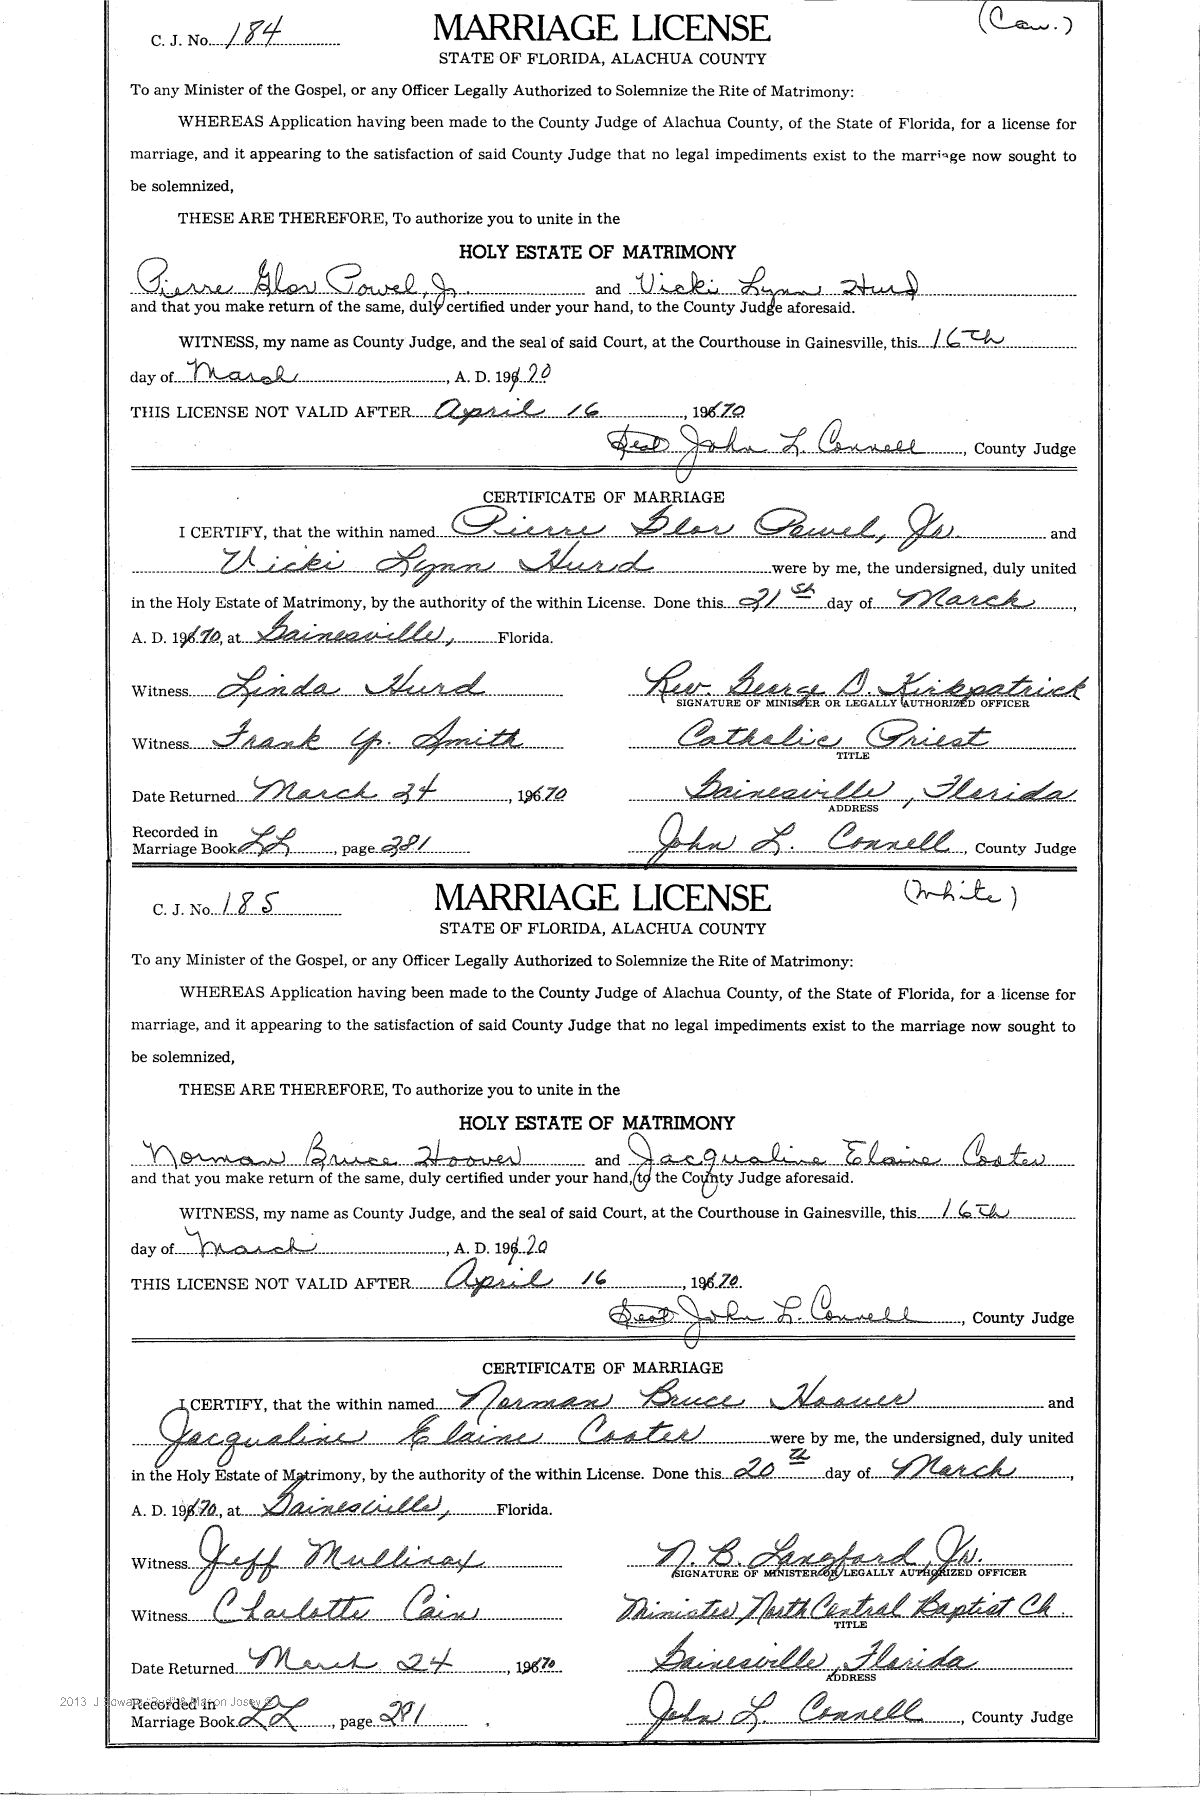 C. J. No. 184 MARRIAGE LICENSE (Cau.)
STATE OF FLORIDA, ALACHUA COUNTY
To any Minister of the Gospel, or any Officer Legally Authorized to Solemnize the Rite of Matrimony:
WHEREAS Application having been made to the County Judge of Alachua County, of the State of Florida, for a license for
marriage, and it appearing to the satisfaction of said County Judge that no legal impediments exist to the marriage now sought to
be solemnized,
THESE ARE THEREFORE, To authorize you to unite in the
HOLY ESTATE OF MATRIMONY
Pierre Glor Powel, Jr. and Vicki Lynn Hurd
and that you make return of the same, duly certified under your hand, to the County Judge aforesaid.
WITNESS, my name as County Judge, and the seal of said Court, at the Courthouse in Gainesville, this 16Th
day of March, A. D. 196 70
THIS LICENSE NOT VALID AFTER April 16, 196 70
Seal John L. Connell, County Judge
CERTIFICATE OF MARRIAGE
I CERTIFY, that the within named Pierre Glor Powel, Jr. and
Vicki Lynn Hurd were by me, the undersigned, duly united
in the Holy Estate of Matrimony, by the authority of the within License. Done this 21st day of March,
A. D. 196 70, at Gainesville, Florida.
Witness Linda Hurd Rev. George D. Kirkpatrick
SIGNATURE OF MINISTER OR LEGALLY AUTHORIZED OFFICER
Witness Frank Y. Smith Catholic Priest
TITLE
Date Returned March 24, 196 70 Gainesville, Florida
ADDRESS
Recorded in
Marriage Book LL, page 281 John L. Connell, County Judge
C. J. No. 185 MARRIAGE LICENSE (White)
STATE OF FLORIDA, ALACHUA COUNTY
To any Minister of the Gospel, or any Officer Legally Authorized to Solemnize the Rite of Matrimony:
WHEREAS Application having been made to the County Judge of Alachua County, of the State of Florida, for a license for
marriage, and it appearing to the satisfaction of said County Judge that no legal impediments exist to the marriage now sought to
be solemnized,
THESE ARE THEREFORE, To authorize you to unite in the
HOLY ESTATE OF MATRIMONY
Norman Bruce Hoover and Jacqualine Elaine Coater
and that you make return of the same, duly certified under your hand, to the County Judge aforesaid.
WITNESS, my name as County Judge, and the seal of said Court, at the Courthouse in Gainesville, this 16Th
day of March, A. D. 196 70
THIS LICENSE NOT VALID AFTER April 16, 196 70
Seal John L. Connell, County Judge
CERTIFICATE OF MARRIAGE
I CERTIFY, that the within named Norman Bruce Hoover and
Jacqualine Elaine Coater were by me, the undersigned, duly united
in the Holy Estate of Matrimony, by the authority of the within License. Done this 20th day of March,
A. D. 196 70, at Gainesville, Florida.
Witness Jeff Mullinax N. B. Langford, Jr.
SIGNATURE OF MINISTER OR LEGALLY AUTHORIZED OFFICER
Witness Charlotte Cain Minister, North Central Baptist Ch.
TITLE
Date Returned March 24, 196 70 Gainesville, Florida
ADDRESS
2013 J
Recorded in
Marriage Book LL, page 281 John L. Connell, County Judge